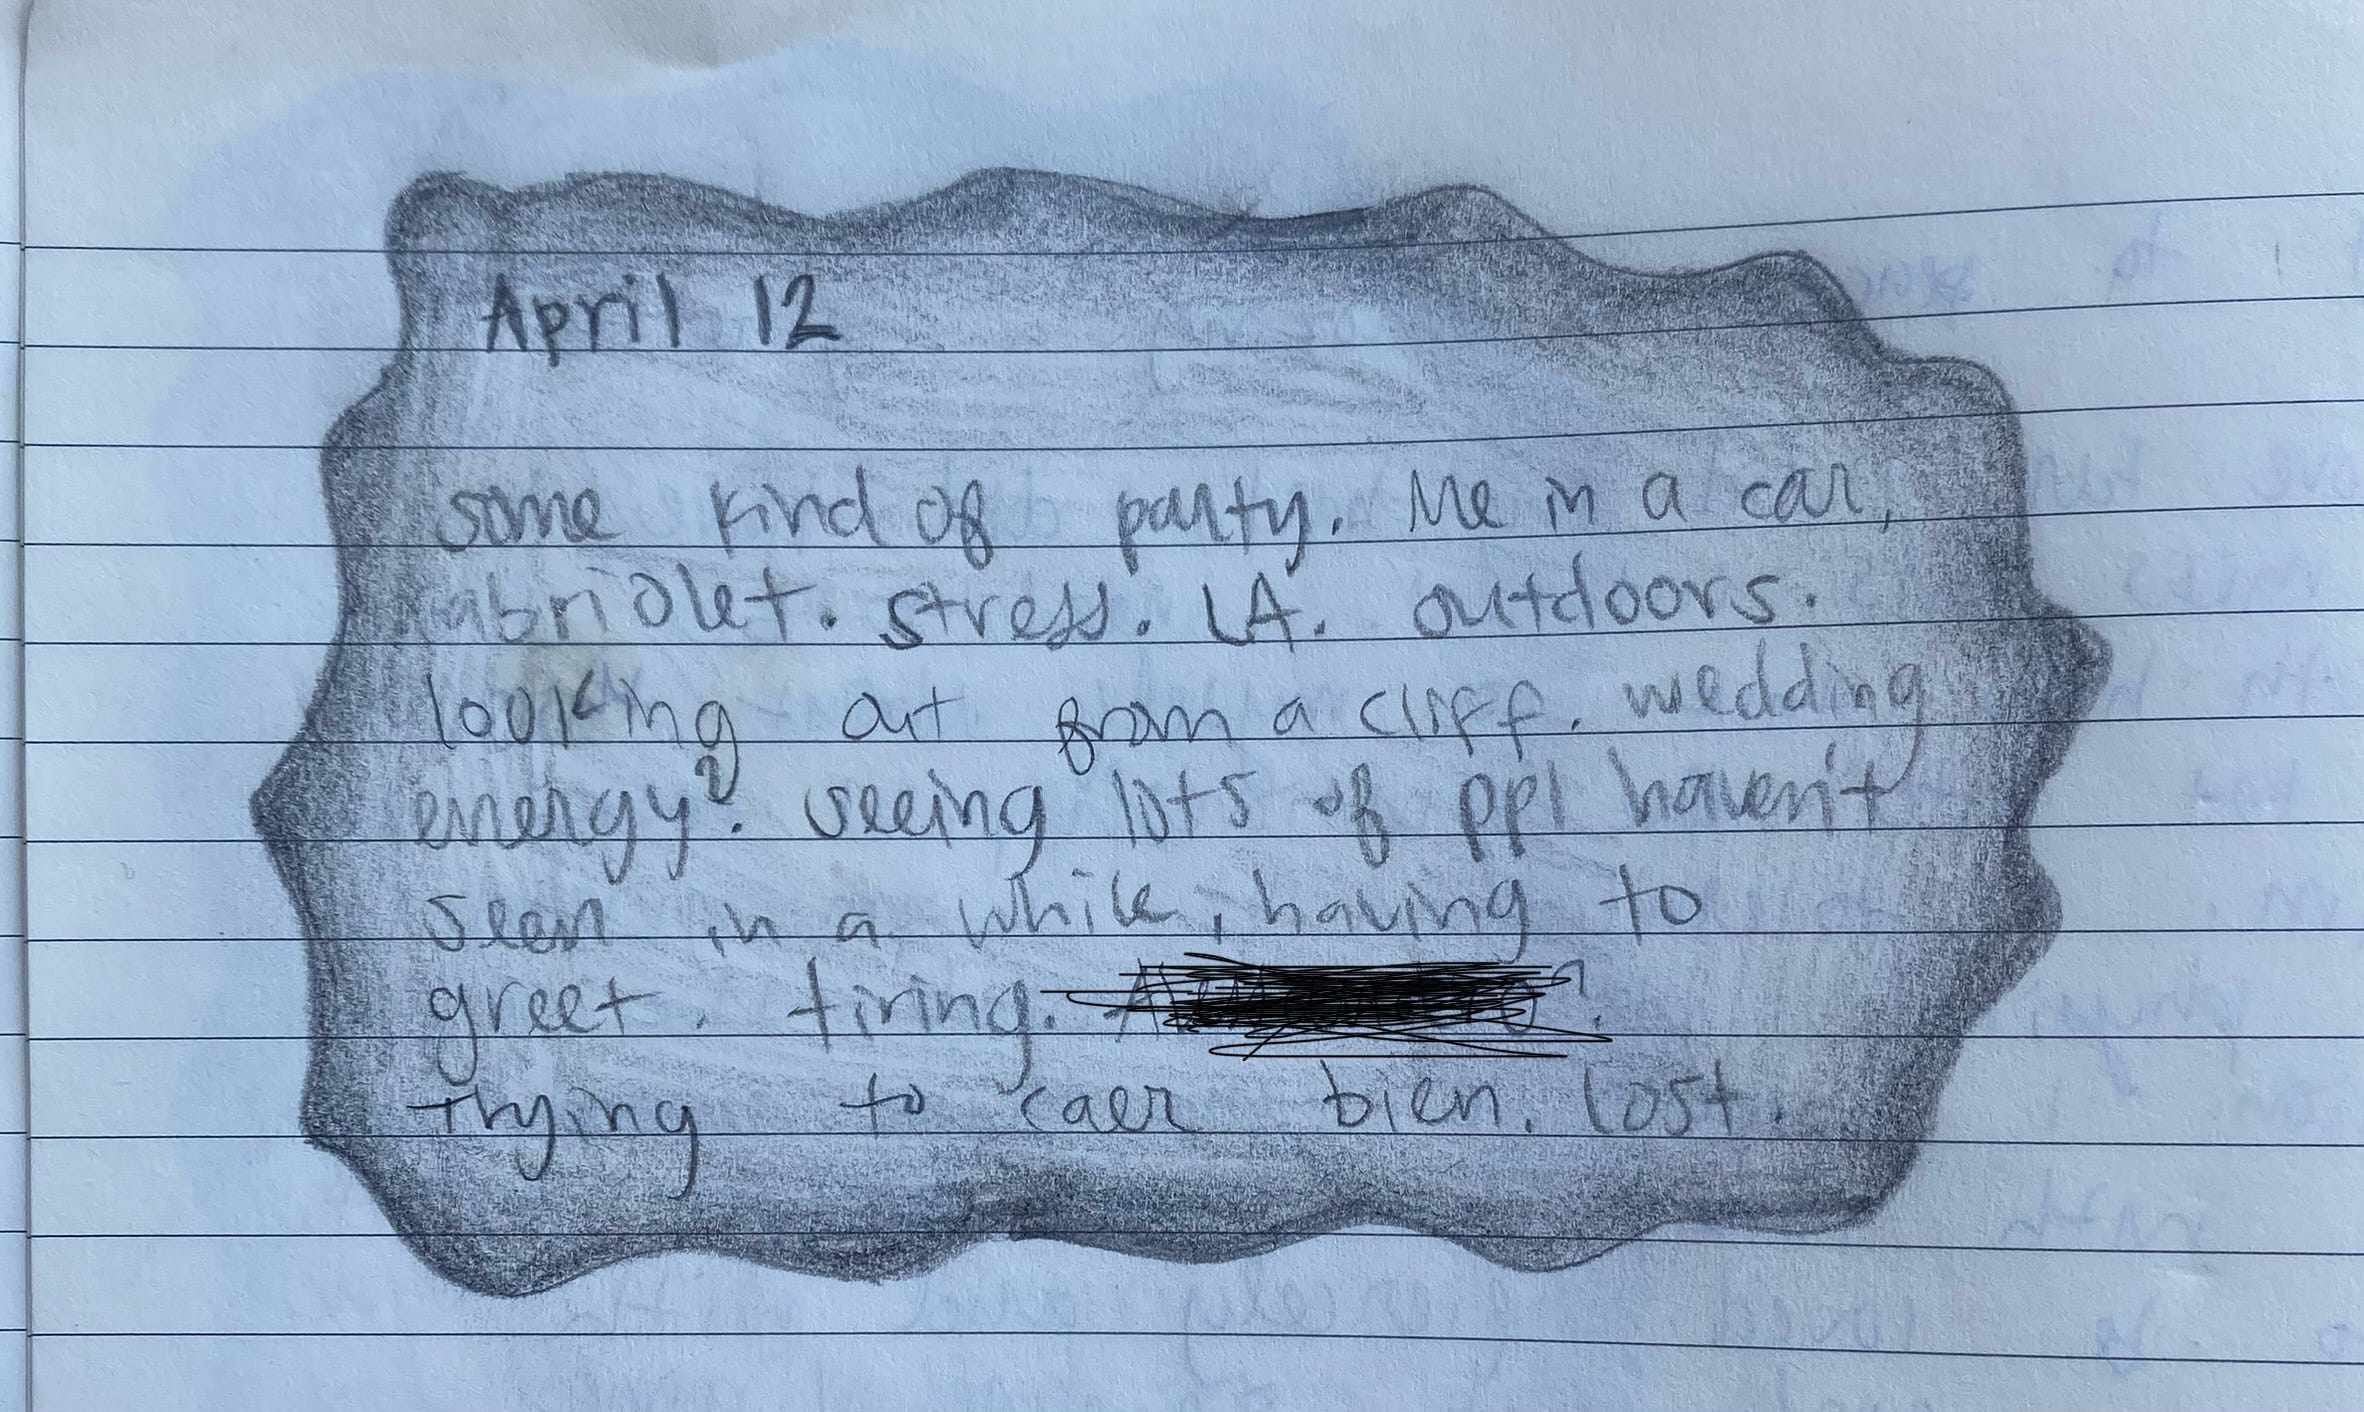 April 12
some kind of party. Me in a car,
cabriolet. stress. LA. outdoors.
looking out from a cliff. wedding
energy? seeing lots of ppl haven't
seen in a while, having to
greet. tiring.
trying to caer bien. lost.